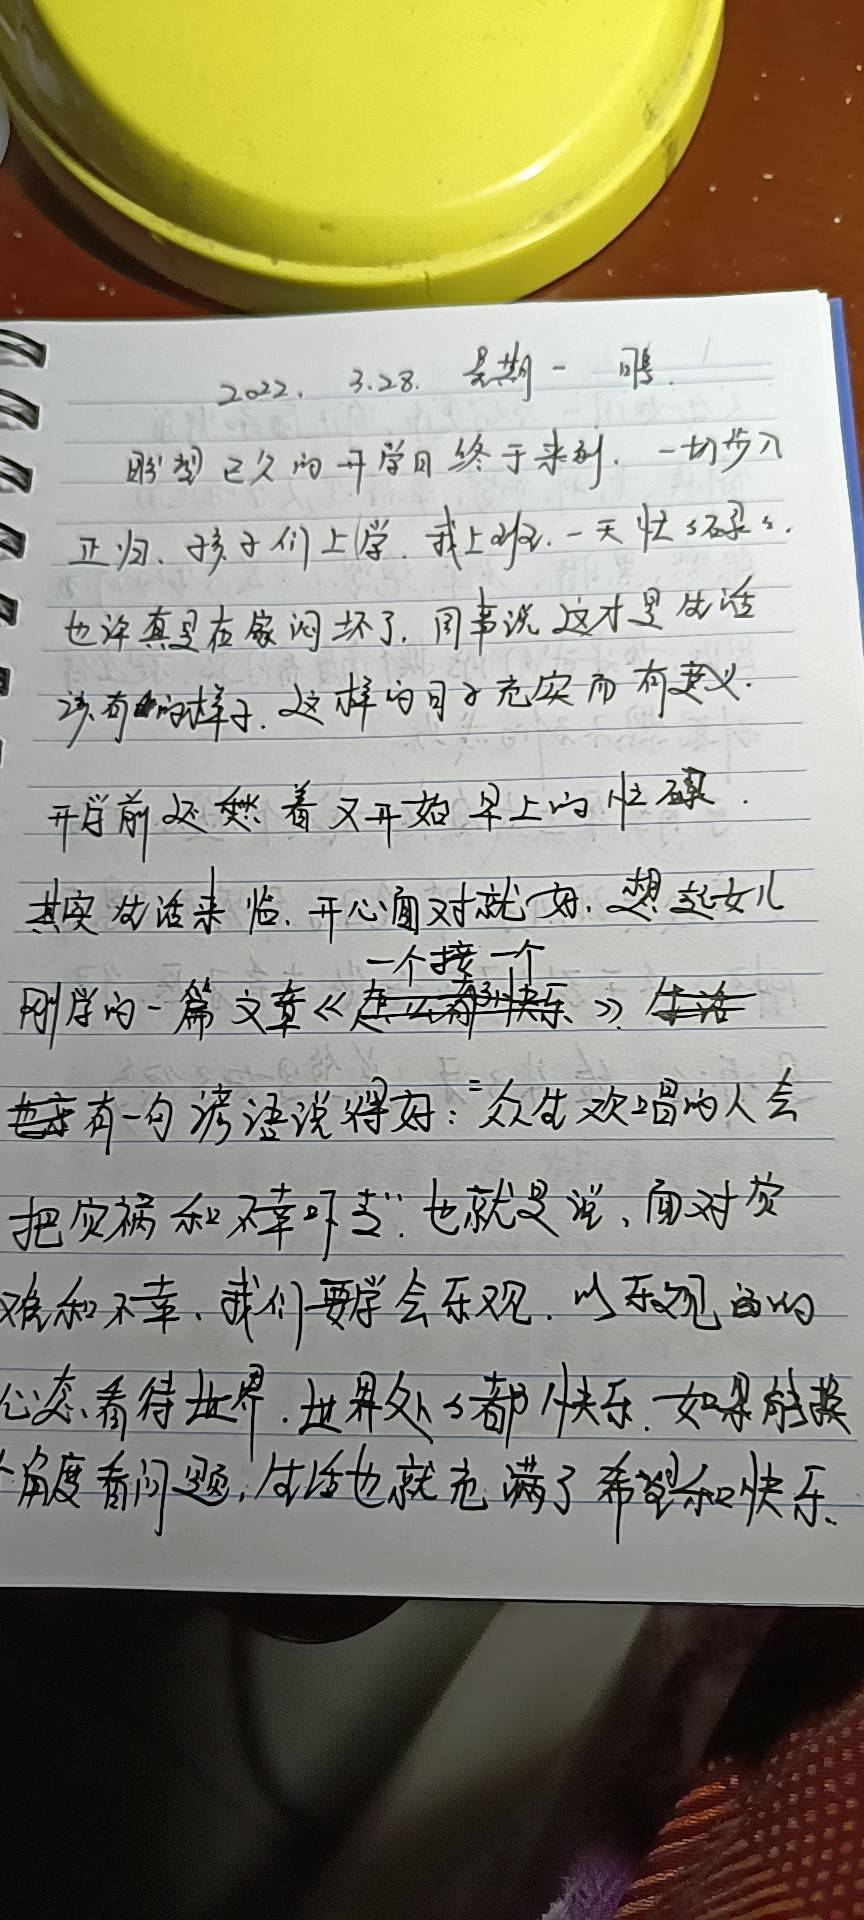 2022. 3.28. 星期一 晴.
盼望已久的开学日终于来到. 一切步入
正归、孩子们上学. 我上班. 一天忙々碌々.
也许真是在家闷坏了. 同事说这才是生活
该有的样子. 这样的日子充实而有意义.
开学前还愁着又开始早上的忙碌.
其实生活来临. 开心面对就好. 想起女儿
刚学的一篇文章《一个接一个》
有一句谚语说得好:“众生欢唱的人会
把灾祸和不幸吓走”. 也就是说、面对灾
难和不幸、我们要学会乐观. 以乐观的
心态看待世界. 世界处々都快乐. 如果能换
个角度看问题, 生活也就充满了希望和快乐.